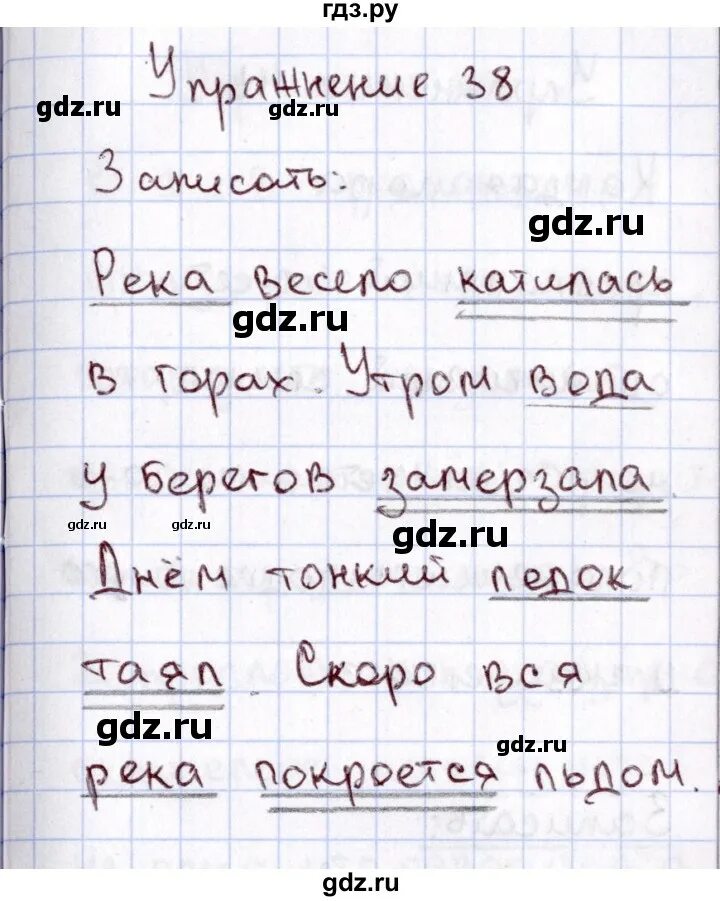 гдз.ру
Упражнение 38
gdz.ru
gdz.ru
Записать:
gdz.ru
Река весело катилась
gdz.ru
в горах. Утром вода
у берегов замерзала.
gdz.ru
gdz.ru
gdz.ru
Днём тонкий ледок
таял. Скоро вся
gdz.ru
gdz.ru
река покроется льдом.
gdz.ru